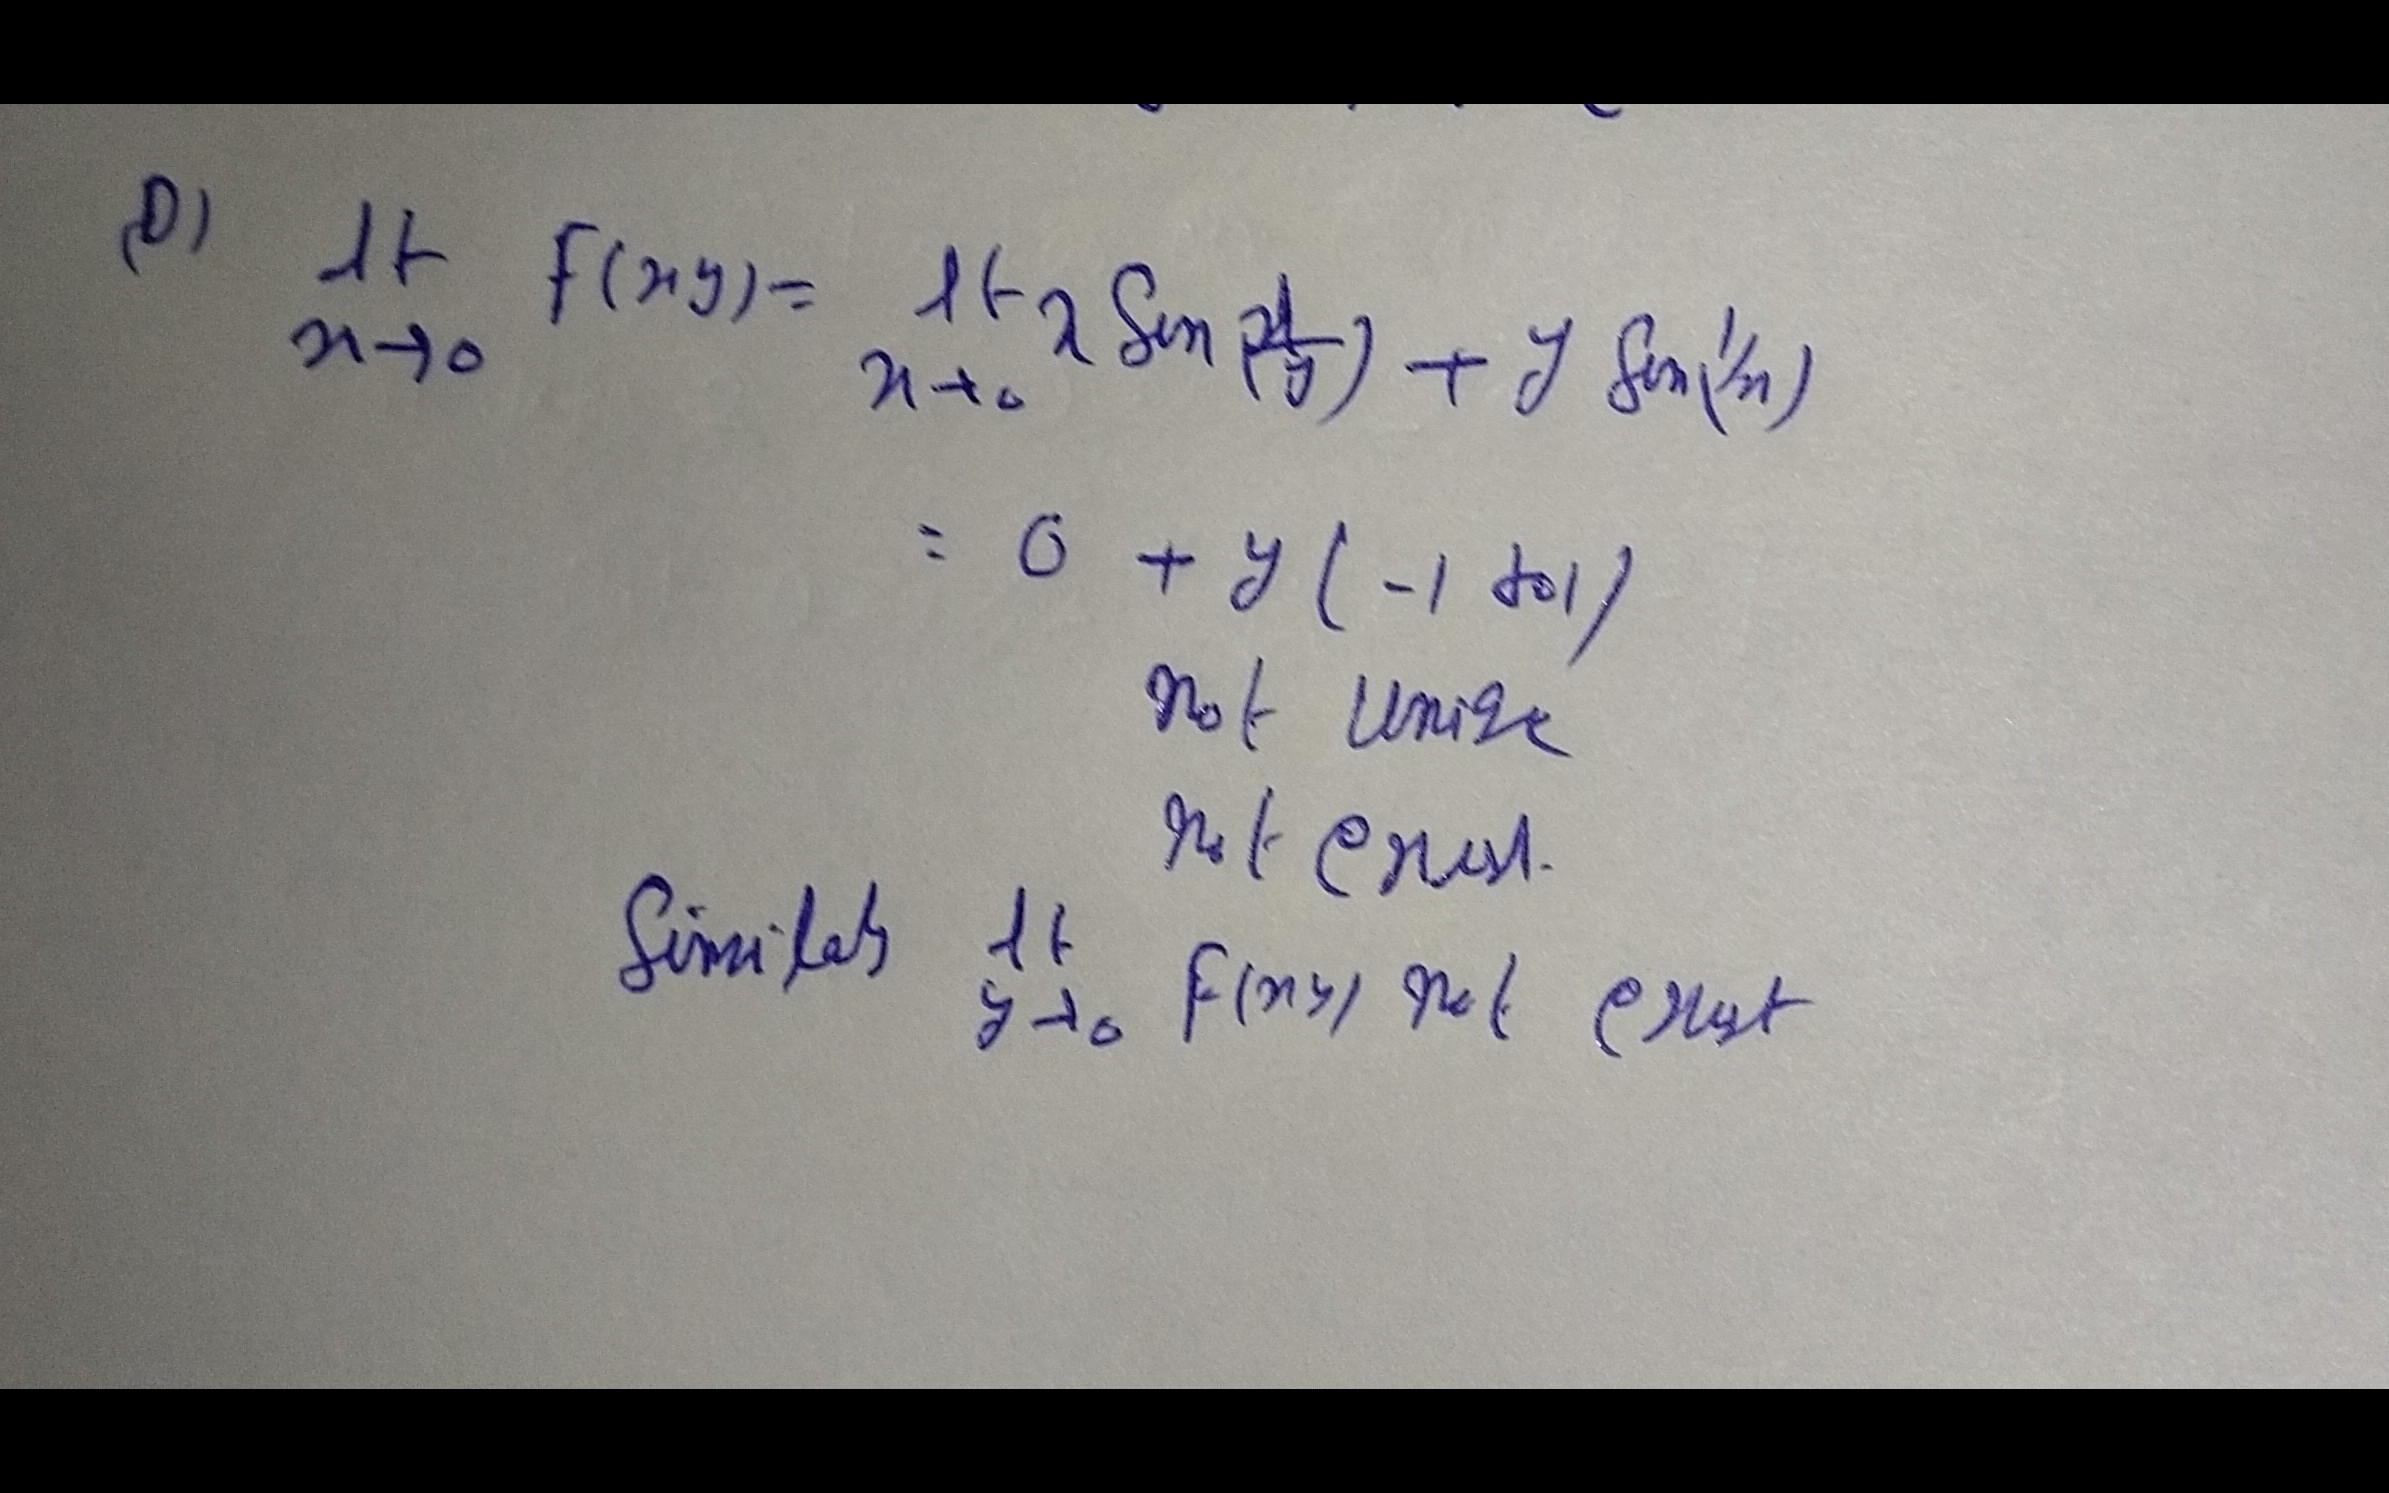 (D) lt x→0 F(xy) = lt x→0 x Sin(1/y) + y Sin(1/x)
= 0 + y (-1 to 1)
not unique
not exist.
Similarly lt y→0 F(xy) not exist